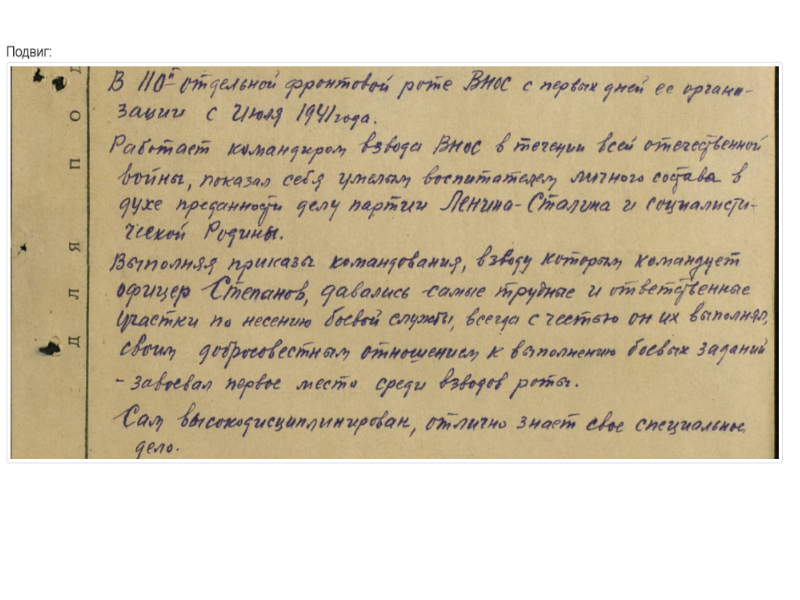 Подвиг:
В 110й отдельной фронтовой роте ВНОС с первых дней ее органи-
зации с Июля 1941 года.
Работает командиром взвода Внос в течении всей отечественной
войны, показал себя умелым воспитателем личного состава в
духе преданности делу партии Ленина-Сталина и социалисти-
ческой Родины.
Выполняя приказы командования, взводу которым командует
офицер Степанов, давались самые трудные и ответственные
участки по несению боевой службы, всегда с честью он их выполнял,
своим добросовестным отношением к выполнению боевых заданий
- завоевал первое место среди взводов роты.
Сам высокодисциплинирован, отлично знает свое специальное
дело.
ДЛЯ ПОД